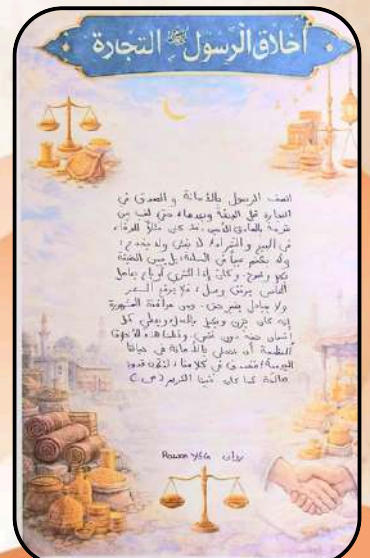 أخلاق الرسول ﷺ التجارة
اتصف الرسول بالأمانة والصدق في
التجارة قبل البعثة وبعدها، حتى لقب بين
بالصادق الأمين، فقد كان مثلاً للوفاء
في البيع والشراء، لا يغش ولا يخدع،
ولا يكتم عيباً في السلعة، بل يبين الحقيقة
بكل وضوح. وكان إذا اشترى أو باع يعامل
الناس برفق وعدل، فلا يرفع السعر
ولا يجادل بغير حق. ومن مواقفه المشهورة
إنه كان يزن ويكيل بالعدل ويعطي كل
إنسان حقه دون نقص. وتعلمنا هذه الأخلاق
العظيمة أن نتحلى بالأمانة في حياتنا
اليومية، ونصدق في كلامنا، لنكون قدوة
صالحة كما كان نبينا الكريم (ص)
روان Rawan